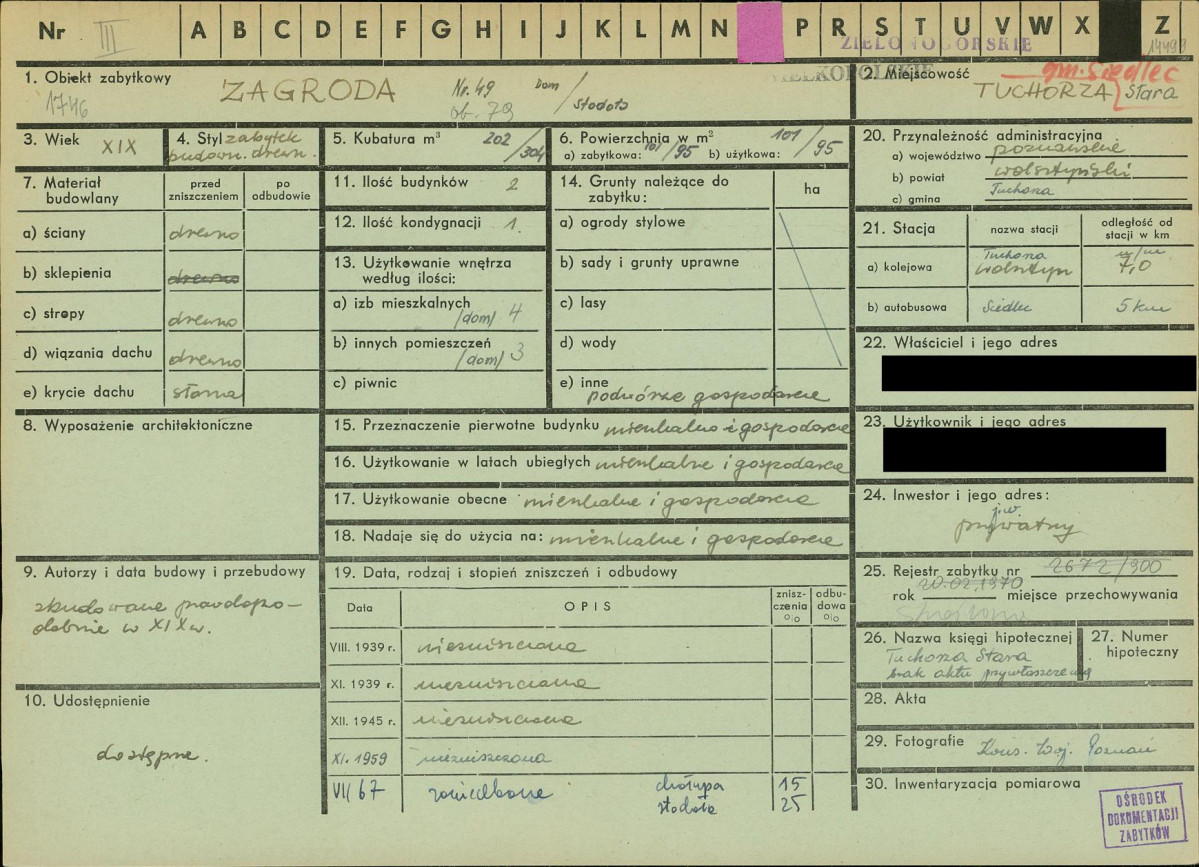 Nr III A B C D E F G H I J K L M N P R S T U V W X Z
ZIELONOGÓRSKIE 14499
WIELKOPOLSKIE
1. Obiekt zabytkowy ZAGRODA Nr. 49 Dom / stodoła
1746 ob. 79
2. Miejscowość gm. Siedlec
TUCHORZA Stara
3. Wiek XIX
4. Styl zabytek
budown. drewn.
5. Kubatura m³ 202 / 304
6. Powierzchnia w m²
a) zabytkowa: 101/95 b) użytkowa: 101/95
7. Materiał budowlany
przed zniszczeniem
po odbudowie
a) ściany drewno
b) sklepienia drewno
c) stropy drewno
d) wiązania dachu drewno
e) krycie dachu słoma
8. Wyposażenie architektoniczne
9. Autorzy i data budowy i przebudowy
zbudowane prawdopo-
dobnie w XIX w.
10. Udostępnienie
dostępne.
11. Ilość budynków 2
12. Ilość kondygnacji 1.
13. Użytkowanie wnętrza
według ilości:
a) izb mieszkalnych
/dom/ 4
b) innych pomieszczeń
/dom/ 3
c) piwnic
14. Grunty należące do
zabytku:
ha
a) ogrody stylowe
b) sady i grunty uprawne
c) lasy
d) wody
e) inne
podwórze gospodarcze
15. Przeznaczenie pierwotne budynku mieszkalno i gospodarcze
16. Użytkowanie w latach ubiegłych mieszkalne i gospodarcze
17. Użytkowanie obecne mieszkalne i gospodarcze
18. Nadaje się do użycia na: mieszkalne i gospodarcze
19. Data, rodzaj i stopień zniszczeń i odbudowy
Data
OPIS
znisz-
czenia
o|o
odbu-
dowa
o|o
VIII. 1939 r. niezniszczona
XI. 1939 r. niezniszczona
XII. 1945 r. niezniszczona
XI. 1959 niezniszczona
VI/67 zaniedbane chałupa 15
stodoła 25
20. Przynależność administracyjna
a) województwo poznańskie
b) powiat wolsztyński
c) gmina Tuchorza
21. Stacja
nazwa stacji
odległość od
stacji w km
a) kolejowa Tuchorza
Wolsztyn 7,0
b) autobusowa Siedlec 5 km
22. Właściciel i jego adres
23. Użytkownik i jego adres
24. Inwestor i jego adres:
j.w.
prywatny
25. Rejestr zabytku nr 2672/900
rok 20.02.1970 miejsce przechowywania
26. Nazwa księgi hipotecznej
Tuchorza Stara
brak aktu przywłaszczenia
27. Numer
hipoteczny
28. Akta
29. Fotografie Kons. Woj. Poznań
30. Inwentaryzacja pomiarowa
OŚRODEK
DOKUMENTACJI
ZABYTKÓW